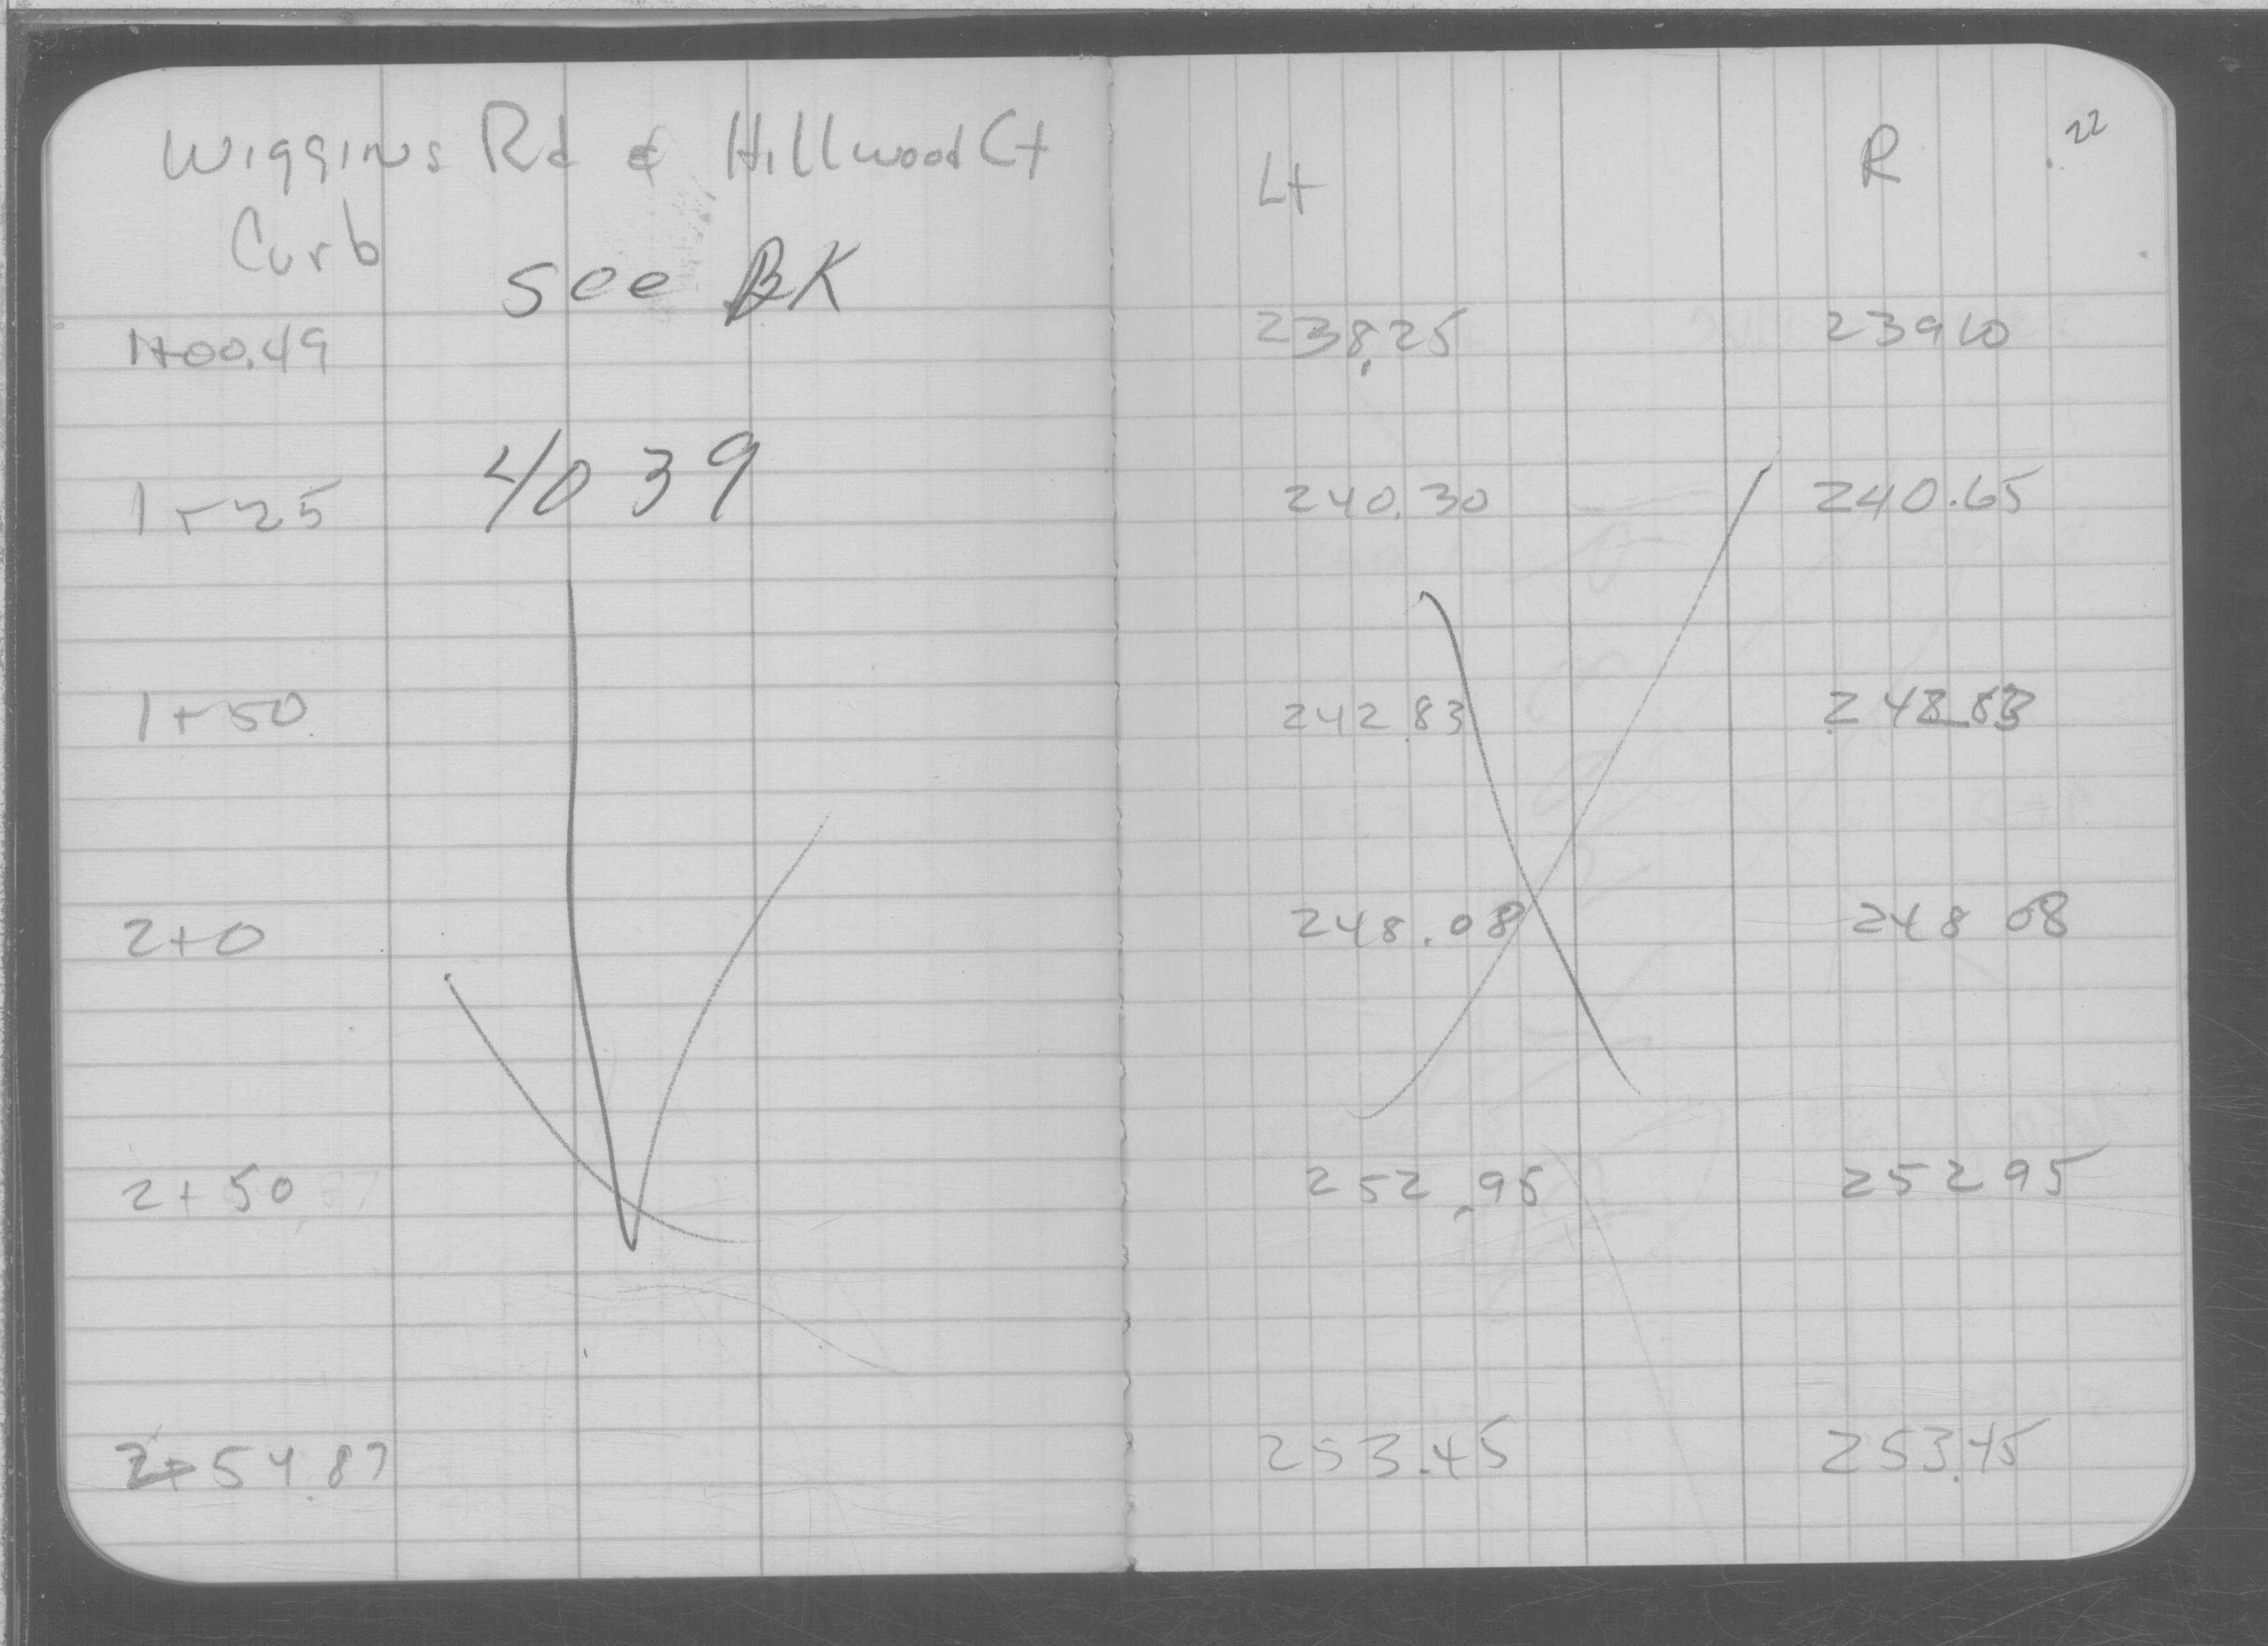 Wiggins Rd & Hillwood Ct
Lt R 22
Curb see BK
1+00.49 238.25 239 10
4039
1+25 240.30 240.65
1+50 242.83
2+0 248.08 248 08
2+50 252.95 252 95
2+54.87 253.45 253.45